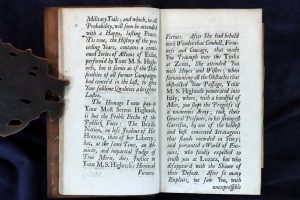 Military Toils; and which, in all
Probability, will soon be attended
with a Happy, lasting Peace.
'Tis true, the History of the pre-
ceding Years, contains a conti-
nued Series of Actions of Eclat
perform'd by Your M. S. High-
ness, but it seems as if the Dis-
positions of all former Campaigns
had center'd in the last, to give
Your sublime Qualities a brighter
Lustre.
The Homage I now pay to
Your Most Serene Highness
is but the Feeble Eccho of the
Publick Voice: The British
Nation, no less Jealous of his
Honour, than of her Liberty,
but, at the same Time, an At-
tentive, and impartial Judge of
True Merit, does Justice to
Your M. S. Highness's Heroical
Virtues
Virtues. After She had beheld
with Wonder that Conduct, Firm-
ness and Courage, that made
You Triumph over the Turks
at Zenta, She attended You
with Hopes and Wishes; when
surmounting all the Obstacles that
obstructed Your Passage, Your
M. S. Highness penetrated into
Italy, where, with a handful of
Men, you stopt the Progress of
a numerous Army, took their
General Prisoner, in his strongest
Garrison, by one of the boldest
and best concerted Stratagems
that stands recorded in Story;
and prevented a World of Ene-
mies, who fondly expected to
crush you at Luzara, for who
disappeared with the Shame of
their Defeat. After so many
Exploits, we saw You, with
unexpressible